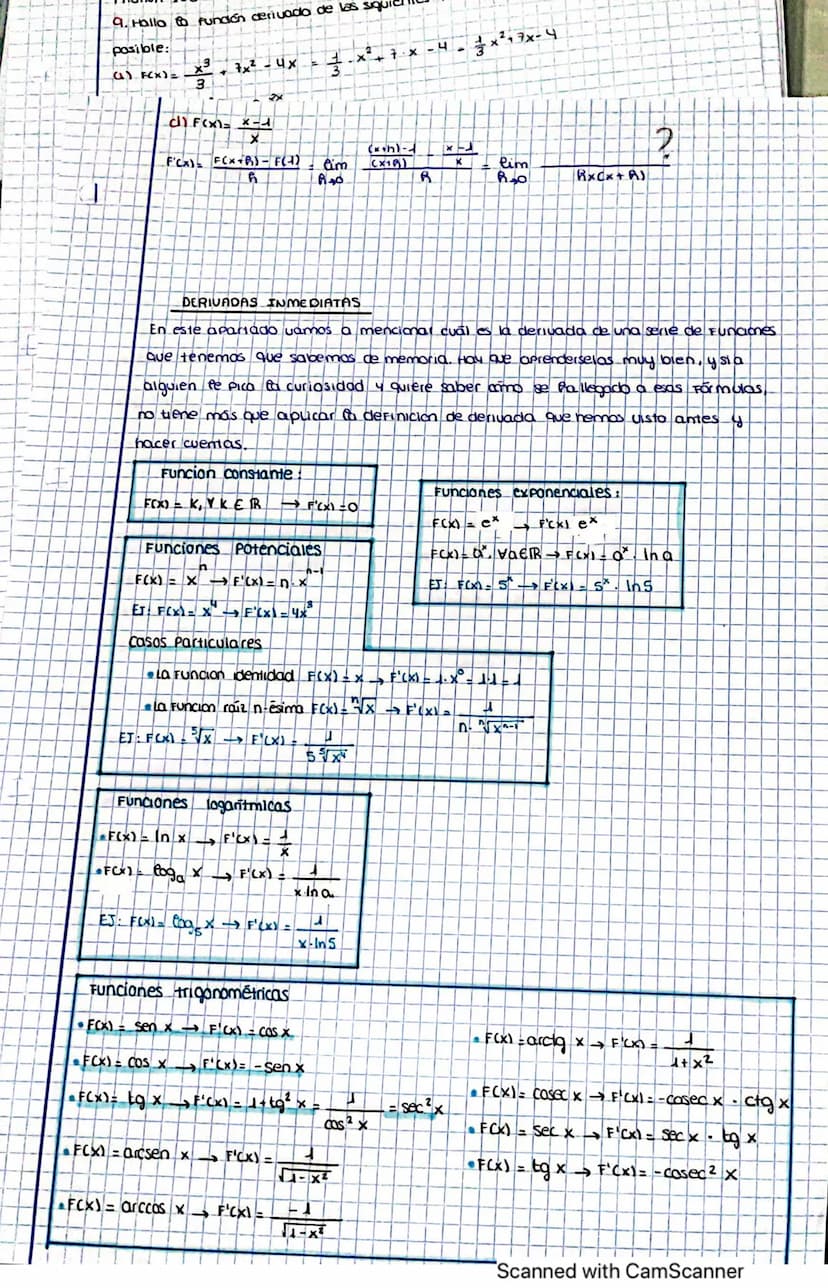 9. Hallo la función derivada de las siguie
posible:
a) F(x) = x³/3 + 7x² - 4x = 1/3 · x² + 7 · x - 4 = 1/3 x² + 7x - 4
d) F(x) = x-1/x
F'(x) = F(x+h) - F(1)/h = lim h→0 ((x+h)-1/(x+h) - x-1/x)/h = lim h→0 ?/hx(x+h)
DERIVADAS INMEDIATAS
En este apartado vamos a mencionar cuál es la derivada de una serie de Funciones
que tenemos que sabernos de memoria. Hay que aprenderselas muy bien, y si a
alguien le pica la curiosidad y quiere saber cómo se ha llegado a esas Fórmulas,
no tiene más que aplicar la definicion de derivada que hemos visto antes y
hacer cuentas.
Funcion constante:
F(x) = K, ∀ K ∈ ℝ → F'(x) = 0
Funciones exponenciales:
F(x) = eˣ → F'(x) eˣ
F(x) = aˣ, ∀a∈ℝ → F(x) = aˣ · ln a
EJ: F(x) = 5ˣ → F'(x) = 5ˣ · ln5
Funciones Potenciales
F(x) = xⁿ → F'(x) = n · xⁿ⁻¹
EJ: F(x) = x⁴ → F'(x) = 4x³
Casos Particulares
• La Funcion identidad F(x) = x → F'(x) = 1 · x⁰ = 1·1 = 1
• La Funcion raíz n-ésima F(x) = ⁿ√x → F'(x) = 1/n · ⁿ√xⁿ⁻¹
EJ: F(x) = ⁵√x → F'(x) = 1/5 ⁵√x⁴
Funciones logarítmicas
• F(x) = ln x → F'(x) = 1/x
• F(x) = logₐ x → F'(x) = 1/x·ln a
EJ: F(x) = log₅ x → F'(x) = 1/x·ln5
Funciones trigonométricas
• F(x) = sen x → F'(x) = cos x
• F(x) = cos x → F'(x) = -sen x
• F(x) = tg x → F'(x) = 1 + tg² x = 1/cos² x = sec² x
• F(x) = arcsen x → F'(x) = 1/√1-x²
• F(x) = arccos x → F'(x) = -1/√1-x²
• F(x) = arctg x → F'(x) = 1/1+x²
• F(x) = cosec x → F'(x) = -cosec x · ctg x
• F(x) = sec x → F'(x) = sec x · tg x
• F(x) = tg x → F'(x) = -cosec² x
Scanned with CamScanner